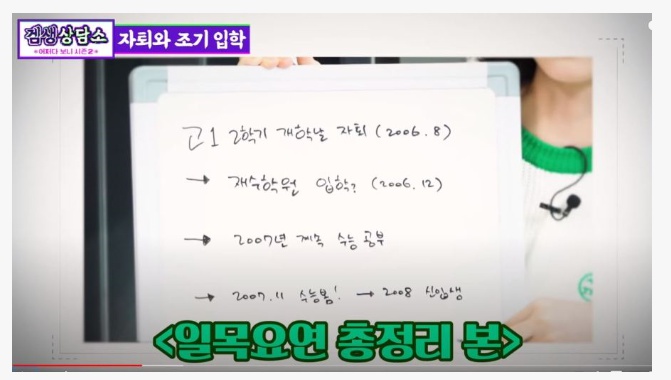 겜생상담소
어쩌다 보니 시즌2
자퇴와 조기 입학
고1 2학기 개학날 자퇴 (2006.8)
→ 재수학원 입학? (2006.12)
→ 2007년 계속 수능 공부
→ 2007.11 수능봄! → 2008 신입생
<일목요연 총정리 본>